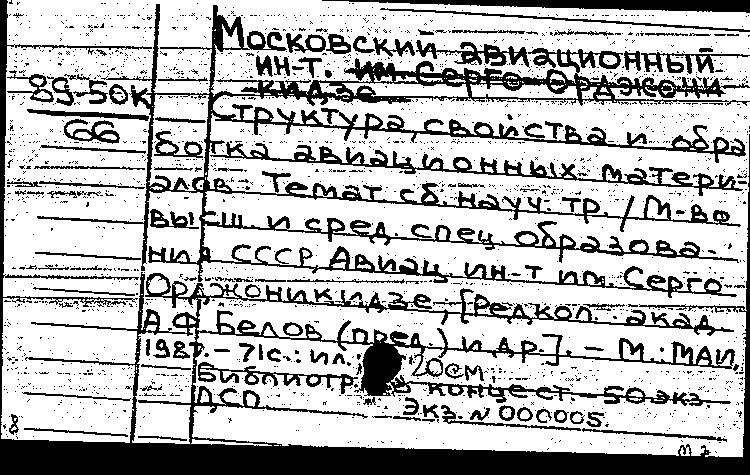 Московский авиационный
ин-т. им. Серго Орджони
кидзе
89-50к
66
Структура, свойства и обра
ботка авиационных матери-
алов: Темат сб. науч. тр. / М-во
высш. и сред. спец. образова-
ния СССР, Авиац. ин-т им. Серго
Орджоникидзе; [Редкол.: акад.
А.Ф. Белов (пред.) и др.]. - М.: МАИ,
1987. - 71с.: ил. 20см.
Библиогр. в конце ст. - 50 экз.
ДСП. Экз. № 000005.